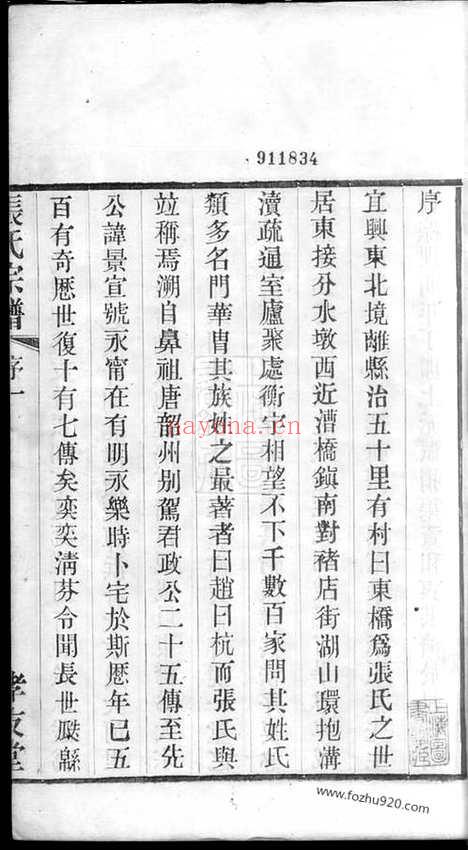 911834
序
宜興東北境離縣治五十里有村曰東橋爲張氏之世
居東接分水墩西近漕橋鎭南對褚店街湖山環抱溝
瀆疏通室廬聚處衡宇相望不下千數百家問其姓氏
類多名門華胄其族姓之最著者曰趙曰杭而張氏與
竝稱焉溯自鼻祖唐韶州別駕君政公二十五傳至先
公諱景宣號永甯在有明永樂時卜宅於斯歷年已五
百有奇歷世復十有七傳矣奕奕淸芬令聞長世厥緜
張氏宗譜 序 一 孝友堂
nayona.cn
www.fozhu920.com